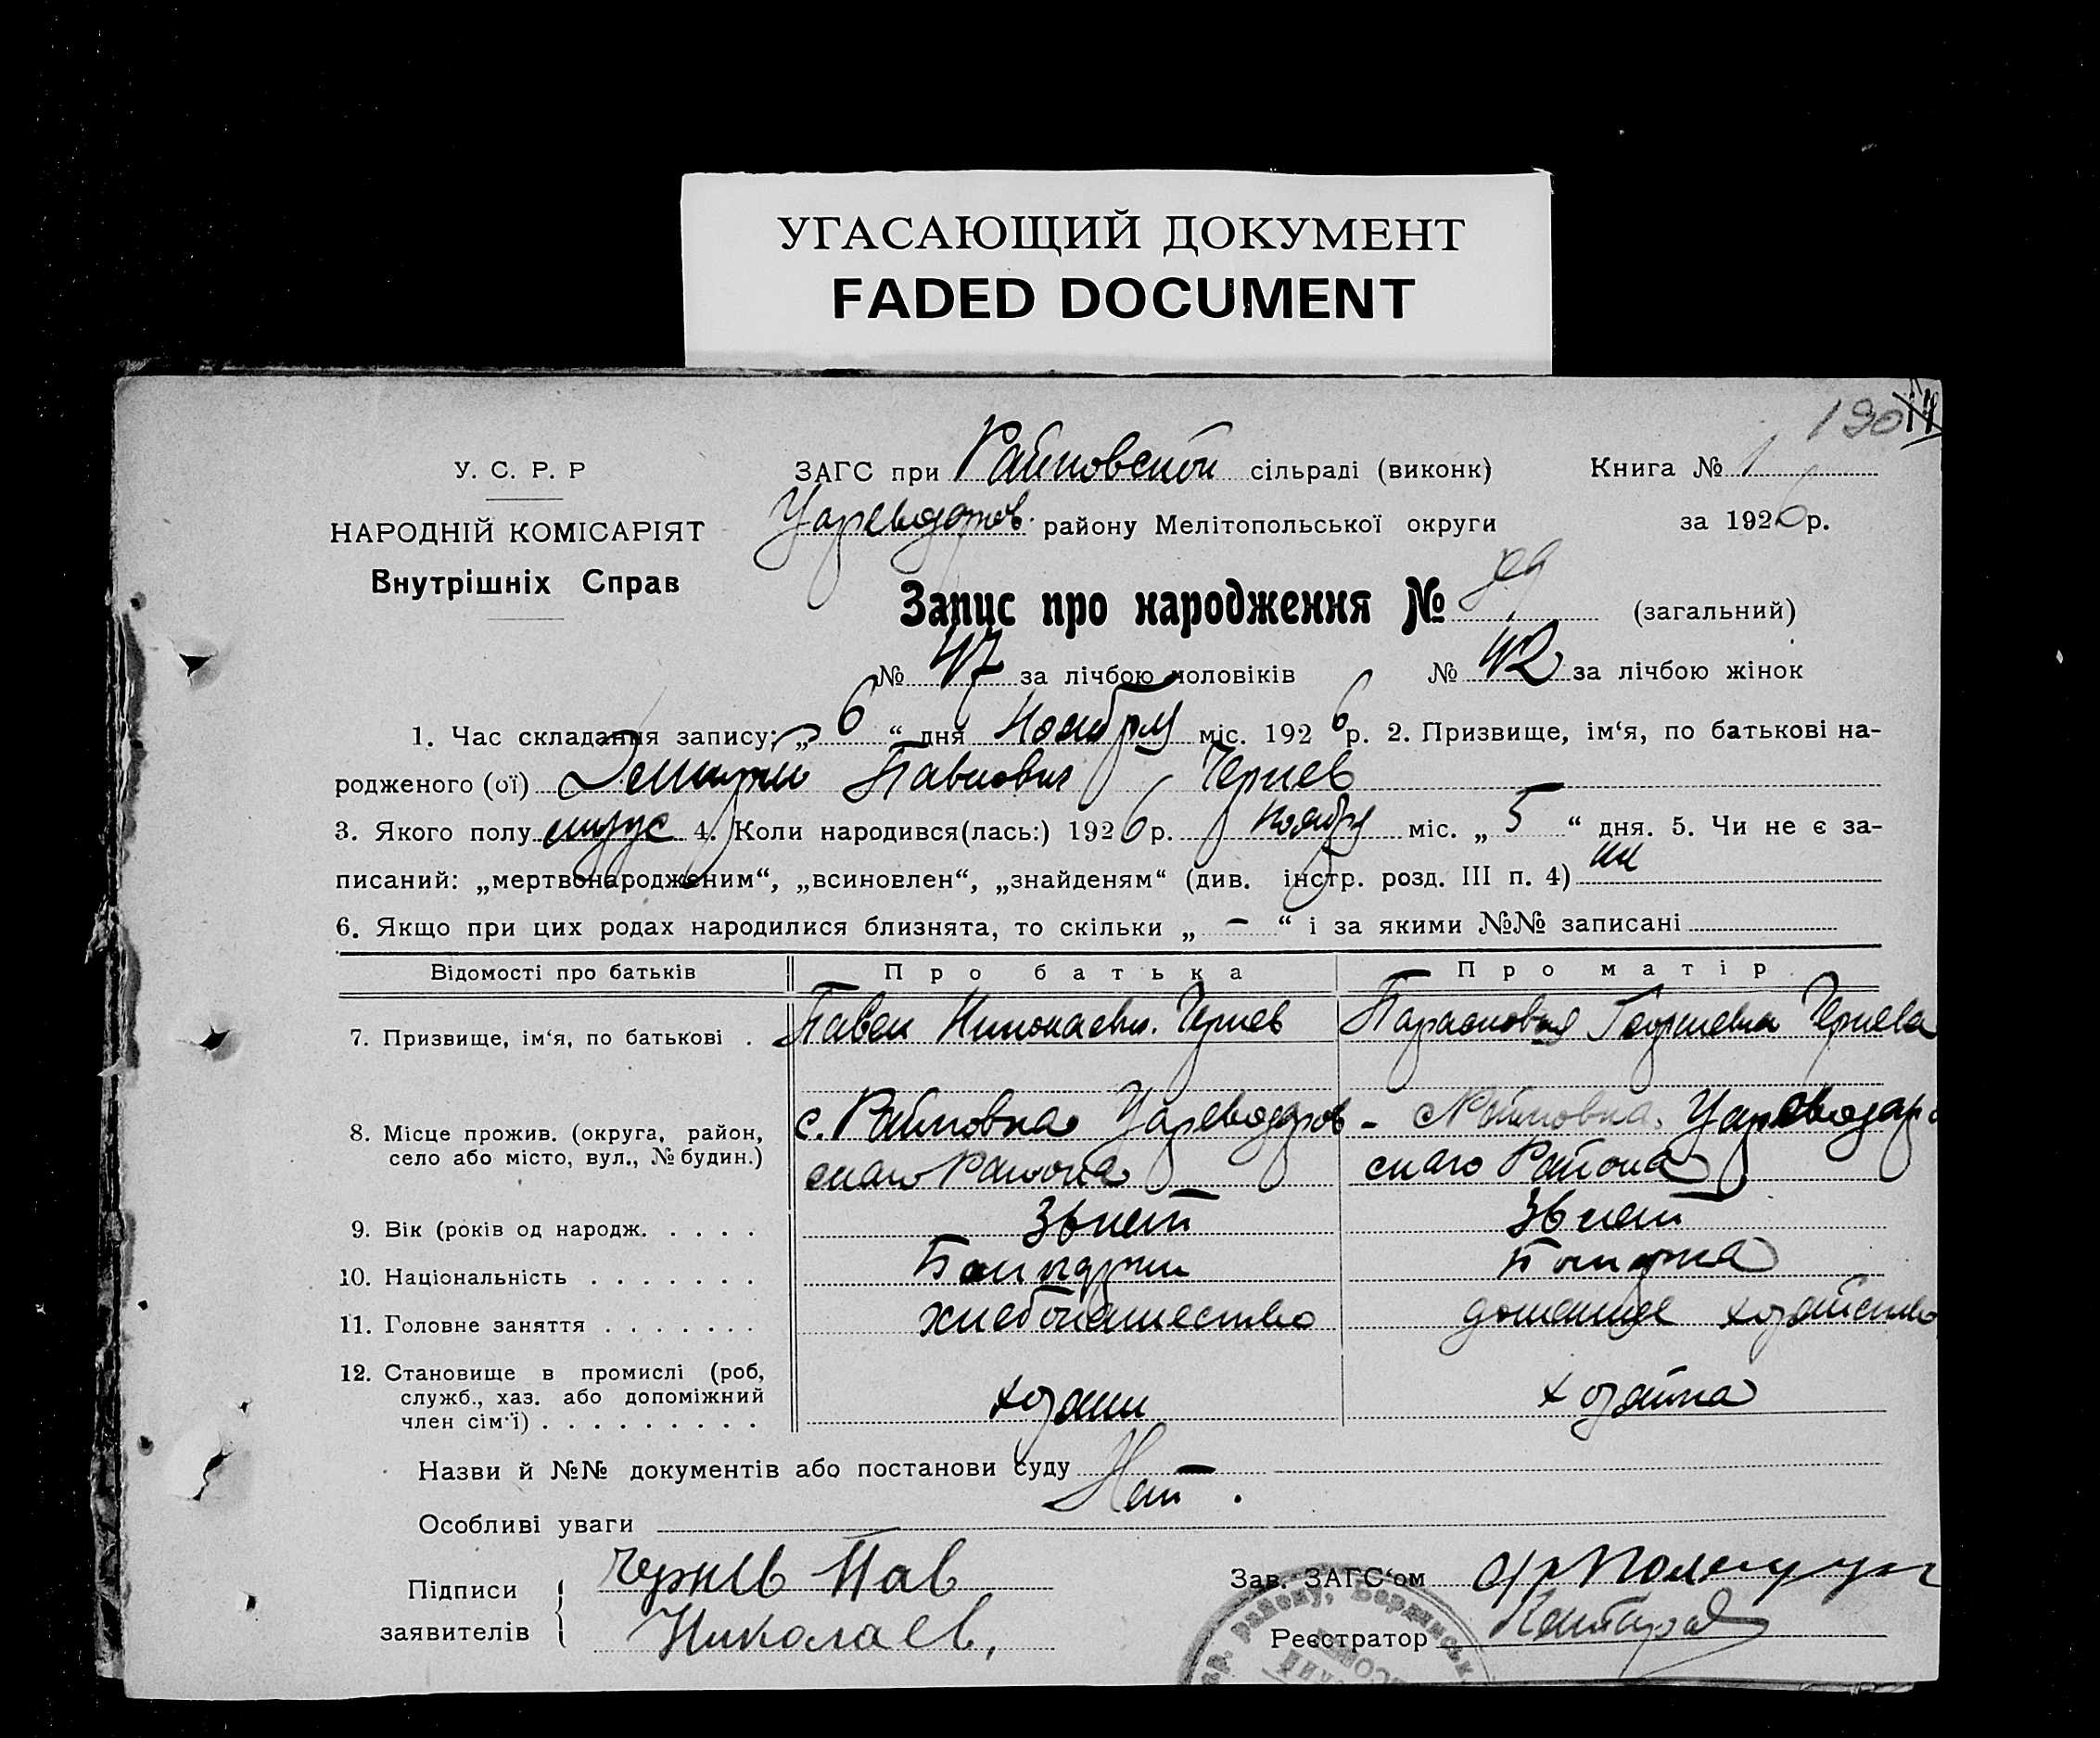 УГАСАЮЩИЙ ДОКУМЕНТ
FADED DOCUMENT
190
У. С. Р. Р
НАРОДНІЙ КОМІСАРІЯТ
Внутрішніх Справ
ЗАГС при Райновской сільраді (виконк)
Книга № 1
Цареводаров. району Мелітопольської округи
за 1926 р.
Запис про народження № 89 (загальний)
№ 47 за лічбою чоловіків № 42 за лічбою жінок
1. Час складання запису: „ 6 “ дня Ноября міс. 1926 р. 2. Призвище, ім‘я, по батькові на-
родженого (ої) Демитри Павлович Чернев
3. Якого полу мужс 4. Коли народився(лась:) 1926 р. Ноября міс. „ 5 “ дня. 5. Чи не є за-
писаний: „мертвонародженим“, „всиновлен“, „знайденям“ (див. інстр. розд. III п. 4)
6. Якщо при цих родах народилися близнята, то скільки „ – “ і за якими №№ записані
Відомості про батьків Про батька Про матір
7. Призвище, ім‘я, по батькові . Павел Николаевич. Чернев Парасковия Георгиевна Чернева
8. Місце прожив. (округа, район, с. Райновка Цареводаров- с Райновка, Цареводар
село або місто, вул., № будин.) скаго Района скаго Района
9. Вік (років од народж. . . . . 36 лет 36 лет
10. Національність . . . . . . . Болгарин Болгарка
11. Головне заняття . . . . . . . хлебопашество домашнее хозяйство
12. Становище в промислі (роб,
служб., хаз. або допоміжний хозяин хозяйка
член сім‘ї) . . . . . . . . .
Назви й №№ документів або постанови суду Нет.
Особливі уваги
Підписи
заявителів
Чернев Пав
Николаев,
Зав. ЗАГС‘ом
Реєстратор
району, Бердянськ